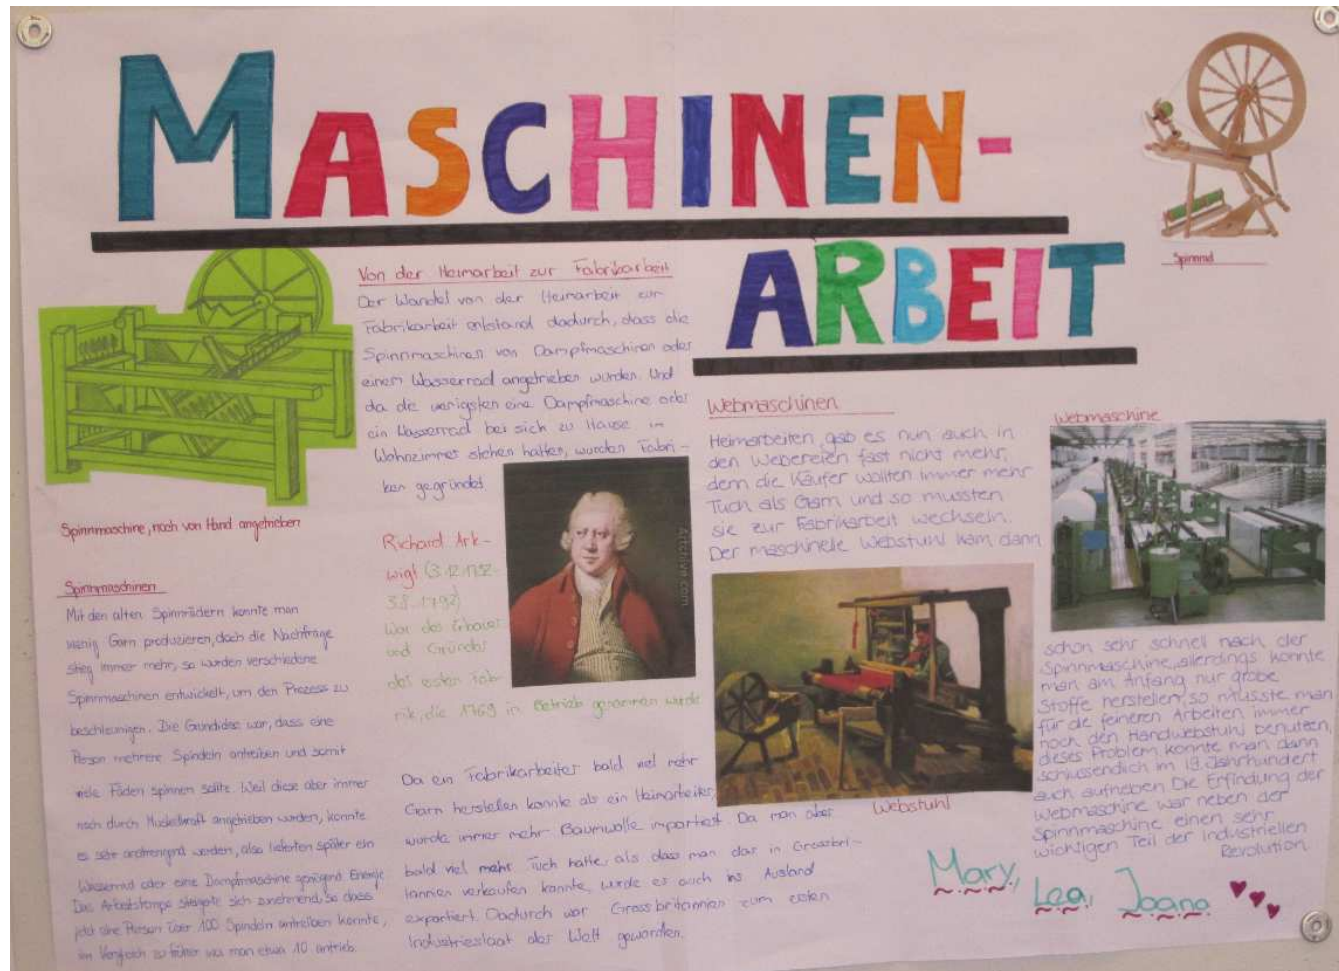 MASCHINEN-
ARBEIT
Spinnrad
Spinnmaschine, noch von Hand angetrieben
Spinnmaschinen
Mit den alten Spinnrädern konnte man
wenig Garn produzieren, doch die Nachfrage
stieg immer mehr, so wurden verschiedene
Spinnmaschinen entwickelt, um den Prozess zu
beschleunigen. Die Grundidee war, dass eine
Person mehrere Spindeln antreiben und somit
viele Fäden spinnen sollte. Weil diese aber immer
noch durch Muskelkraft angetrieben wurden, konnte
es sehr anstrengend werden, also lieferten später ein
Wasserrad oder eine Dampfmaschine genügend Energie
Das Arbeitstempo steigerte sich zunehmend, so dass
jetzt eine Person über 100 Spindeln antreiben konnte,
im Vergleich zu früher wo man etwa 10 antrieb.
Von der Heimarbeit zur Fabrikarbeit
Der Wandel von der Heimarbeit zur
Fabrikarbeit entstand dadurch, dass die
Spinnmaschinen von Dampfmaschinen oder
einem Wasserrad angetrieben wurden. Und
da die wenigsten eine Dampfmaschine oder
ein Wasserrad bei sich zu Hause im
Wohnzimmer stehen hatten, wurden Fabri-
ken gegründet
Richard Ark-
wigt (3.12.1732-
3.8.1792)
War der Erbauer
und Gründer
der ersten Fab-
rik, die 1769 in Betrieb genommen wurde
Artchive.com
Da ein Fabrikarbeiter bald viel mehr
Garn herstellen konnte als ein Heimarbeiter,
wurde immer mehr Baumwolle importiert. Da man aber
bald viel mehr Tuch hatte, als dass man das in Grossbri-
tannien verkaufen konnte, wurde es auch ins Ausland
exportiert. Dadurch war Grossbritannien zum ersten
Industriestaat der Welt geworden.
Webmaschinen
Heimarbeiten, gab es nun auch in
den Webereien fast nicht mehr,
denn die Käufer wollten immer mehr
Tuch als Garn und so mussten
sie zur Fabrikarbeit wechseln.
Der maschinelle Webstuhl kam dann
Webstuhl
Webmaschine
schon sehr schnell nach der
Spinnmaschine, allerdings konnte
man am Anfang nur grobe
Stoffe herstellen, so musste man
für die feineren Arbeiten immer
noch den Handwebstuhl benutzen,
dieses Problem konnte man dann
schlussendlich im 19. Jahrhundert
auch aufheben. Die Erfindung der
Webmaschine war neben der
Spinnmaschine einen sehr
wichtigen Teil der Industriellen
Revolution
Mary, Lea, Joana